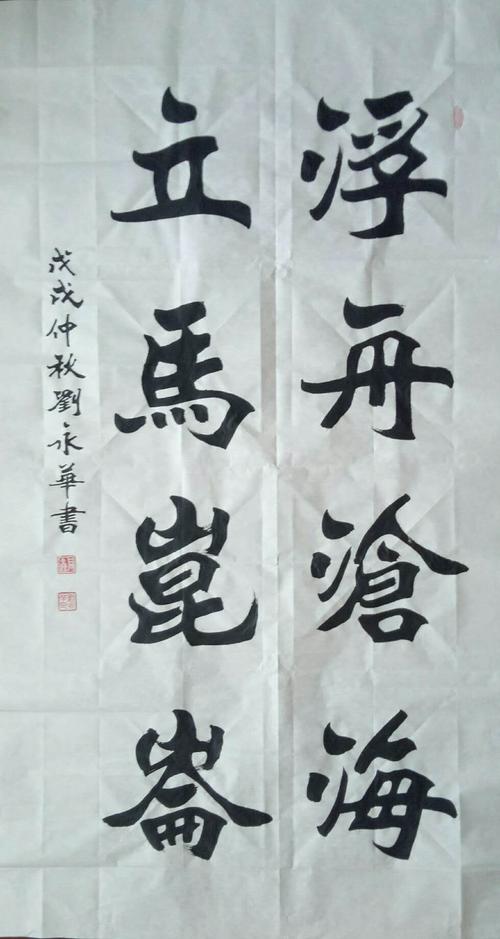 浮舟滄海
立馬崑崙
戊戌仲秋劉永華書